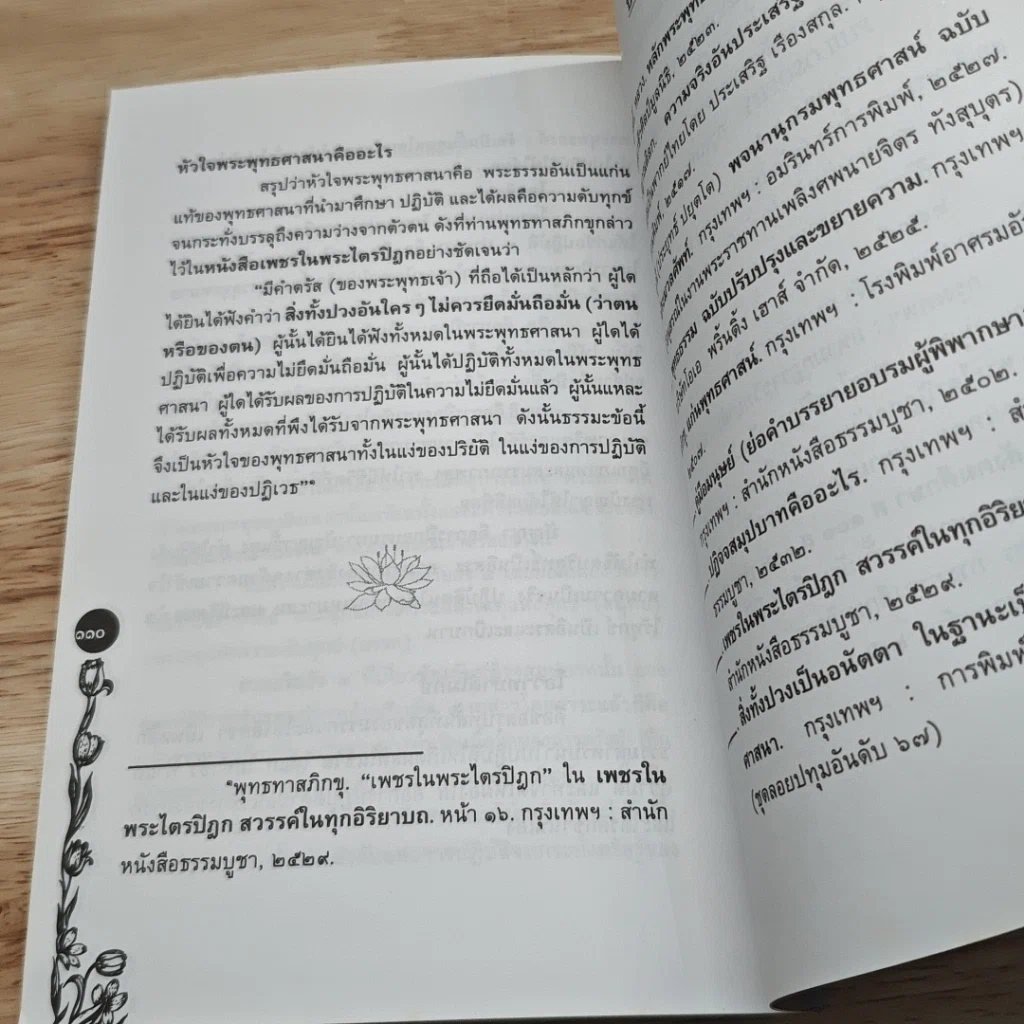 หัวใจพระพุทธศาสนาคืออะไร
สรุปว่าหัวใจพระพุทธศาสนาคือ พระธรรมอันเป็นแก่น
แท้ของพุทธศาสนาที่นำมาศึกษา ปฏิบัติ และได้ผลคือความดับทุกข์
จนกระทั่งบรรลุถึงความว่างจากตัวตน ดังที่ท่านพุทธทาสภิกขุกล่าว
ไว้ในหนังสือเพชรในพระไตรปิฎกอย่างชัดเจนว่า
“มีคำตรัส (ของพระพุทธเจ้า) ที่ถือได้เป็นหลักว่า ผู้ใด
ได้ยินได้ฟังคำว่า สิ่งทั้งปวงอันใครๆ ไม่ควรยึดมั่นถือมั่น (ว่าตน
หรือของตน) ผู้นั้นได้ยินได้ฟังทั้งหมดในพระพุทธศาสนา ผู้ใดได้
ปฏิบัติเพื่อความไม่ยึดมั่นถือมั่น ผู้นั้นได้ปฏิบัติทั้งหมดในพระพุทธ
ศาสนา ผู้ใดได้รับผลของการปฏิบัติในความไม่ยึดมั่นแล้ว ผู้นั้นแหละ
ได้รับผลทั้งหมดที่พึงได้รับจากพระพุทธศาสนา ดังนั้นธรรมะข้อนี้
จึงเป็นหัวใจของพุทธศาสนาทั้งในแง่ของปริยัติ ในแง่ของการปฏิบัติ
และในแง่ของปฏิเวธ”
๑๑๐
พุทธทาสภิกขุ. “เพชรในพระไตรปิฎก” ใน เพชรใน
พระไตรปิฎก สวรรค์ในทุกอิริยาบถ. หน้า ๑๖. กรุงเทพฯ : สำนัก
หนังสือธรรมบูชา, ๒๕๒๙.
หลักพระพุทธ
๒๕๒๓.
ความจริงอันประเสริฐ
พากย์ไทยโดย ประเสริฐ เรืองสกุล.
๒๕๑๗.
(ประยุทธ์ ปยุตฺโต) พจนานุกรมพุทธศาสน์ ฉบับ
กรุงเทพฯ : อมรินทร์การพิมพ์, ๒๕๒๗.
ในงานพระราชทานเพลิงศพนายจิตร ทังสุบุตร)
ฉบับปรับปรุงและขยายความ. กรุงเทพฯ
พริ้นติ้ง เฮาส์ จำกัด, ๒๕๒๕.
แก่นพุทธศาสน์. กรุงเทพฯ : โรงพิมพ์อาศรมอั
๒๕๐๗.
คู่มือมนุษย์ (ย่อคำบรรยายอบรมผู้พิพากษา
กรุงเทพฯ : สำนักหนังสือธรรมบูชา, ๒๕๐๒.
ปฏิจจสมุปบาทคืออะไร. กรุงเทพฯ : สำ
ธรรมบูชา, ๒๕๓๒.
เพชรในพระไตรปิฎก สวรรค์ในทุกอิริย
สำนักหนังสือธรรมบูชา, ๒๕๒๙.
สิ่งทั้งปวงเป็นอนัตตา ในฐานะเป็
ศาสนา. กรุงเทพฯ : การพิมพ์
(ชุดลอยปทุมอันดับ ๖๗)